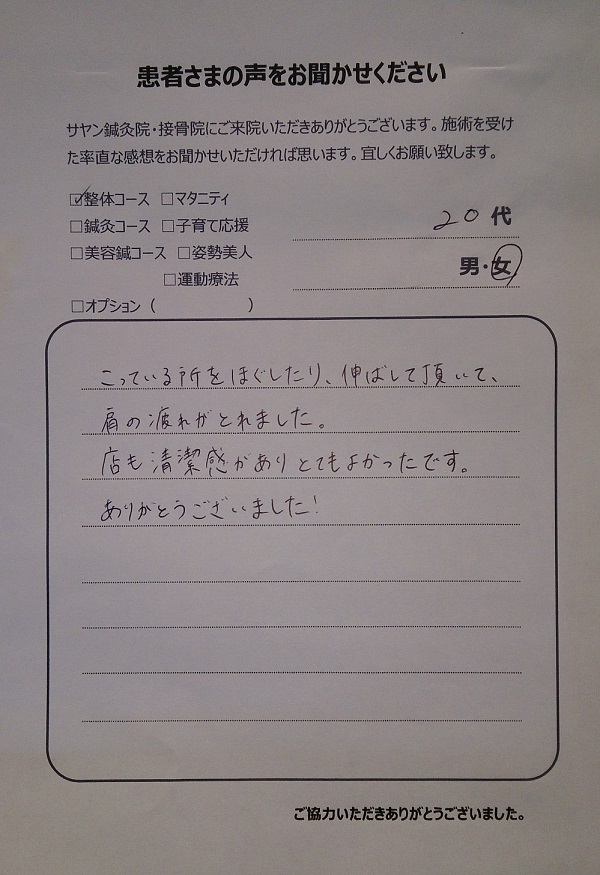 患者さまの声をお聞かせください
サヤン鍼灸院・接骨院にご来院いただきありがとうございます。施術を受け
た率直な感想をお聞かせいただければ思います。宜しくお願い致します。
☑整体コース □マタニティ
□鍼灸コース □子育て応援
20代
□美容鍼コース □姿勢美人
男・女
□運動療法
□オプション（ ）
こっている所をほぐしたり、伸ばして頂いて、
肩の疲れがとれました。
店も清潔感がありとてもよかったです。
ありがとうございました!
ご協力いただきありがとうございました。